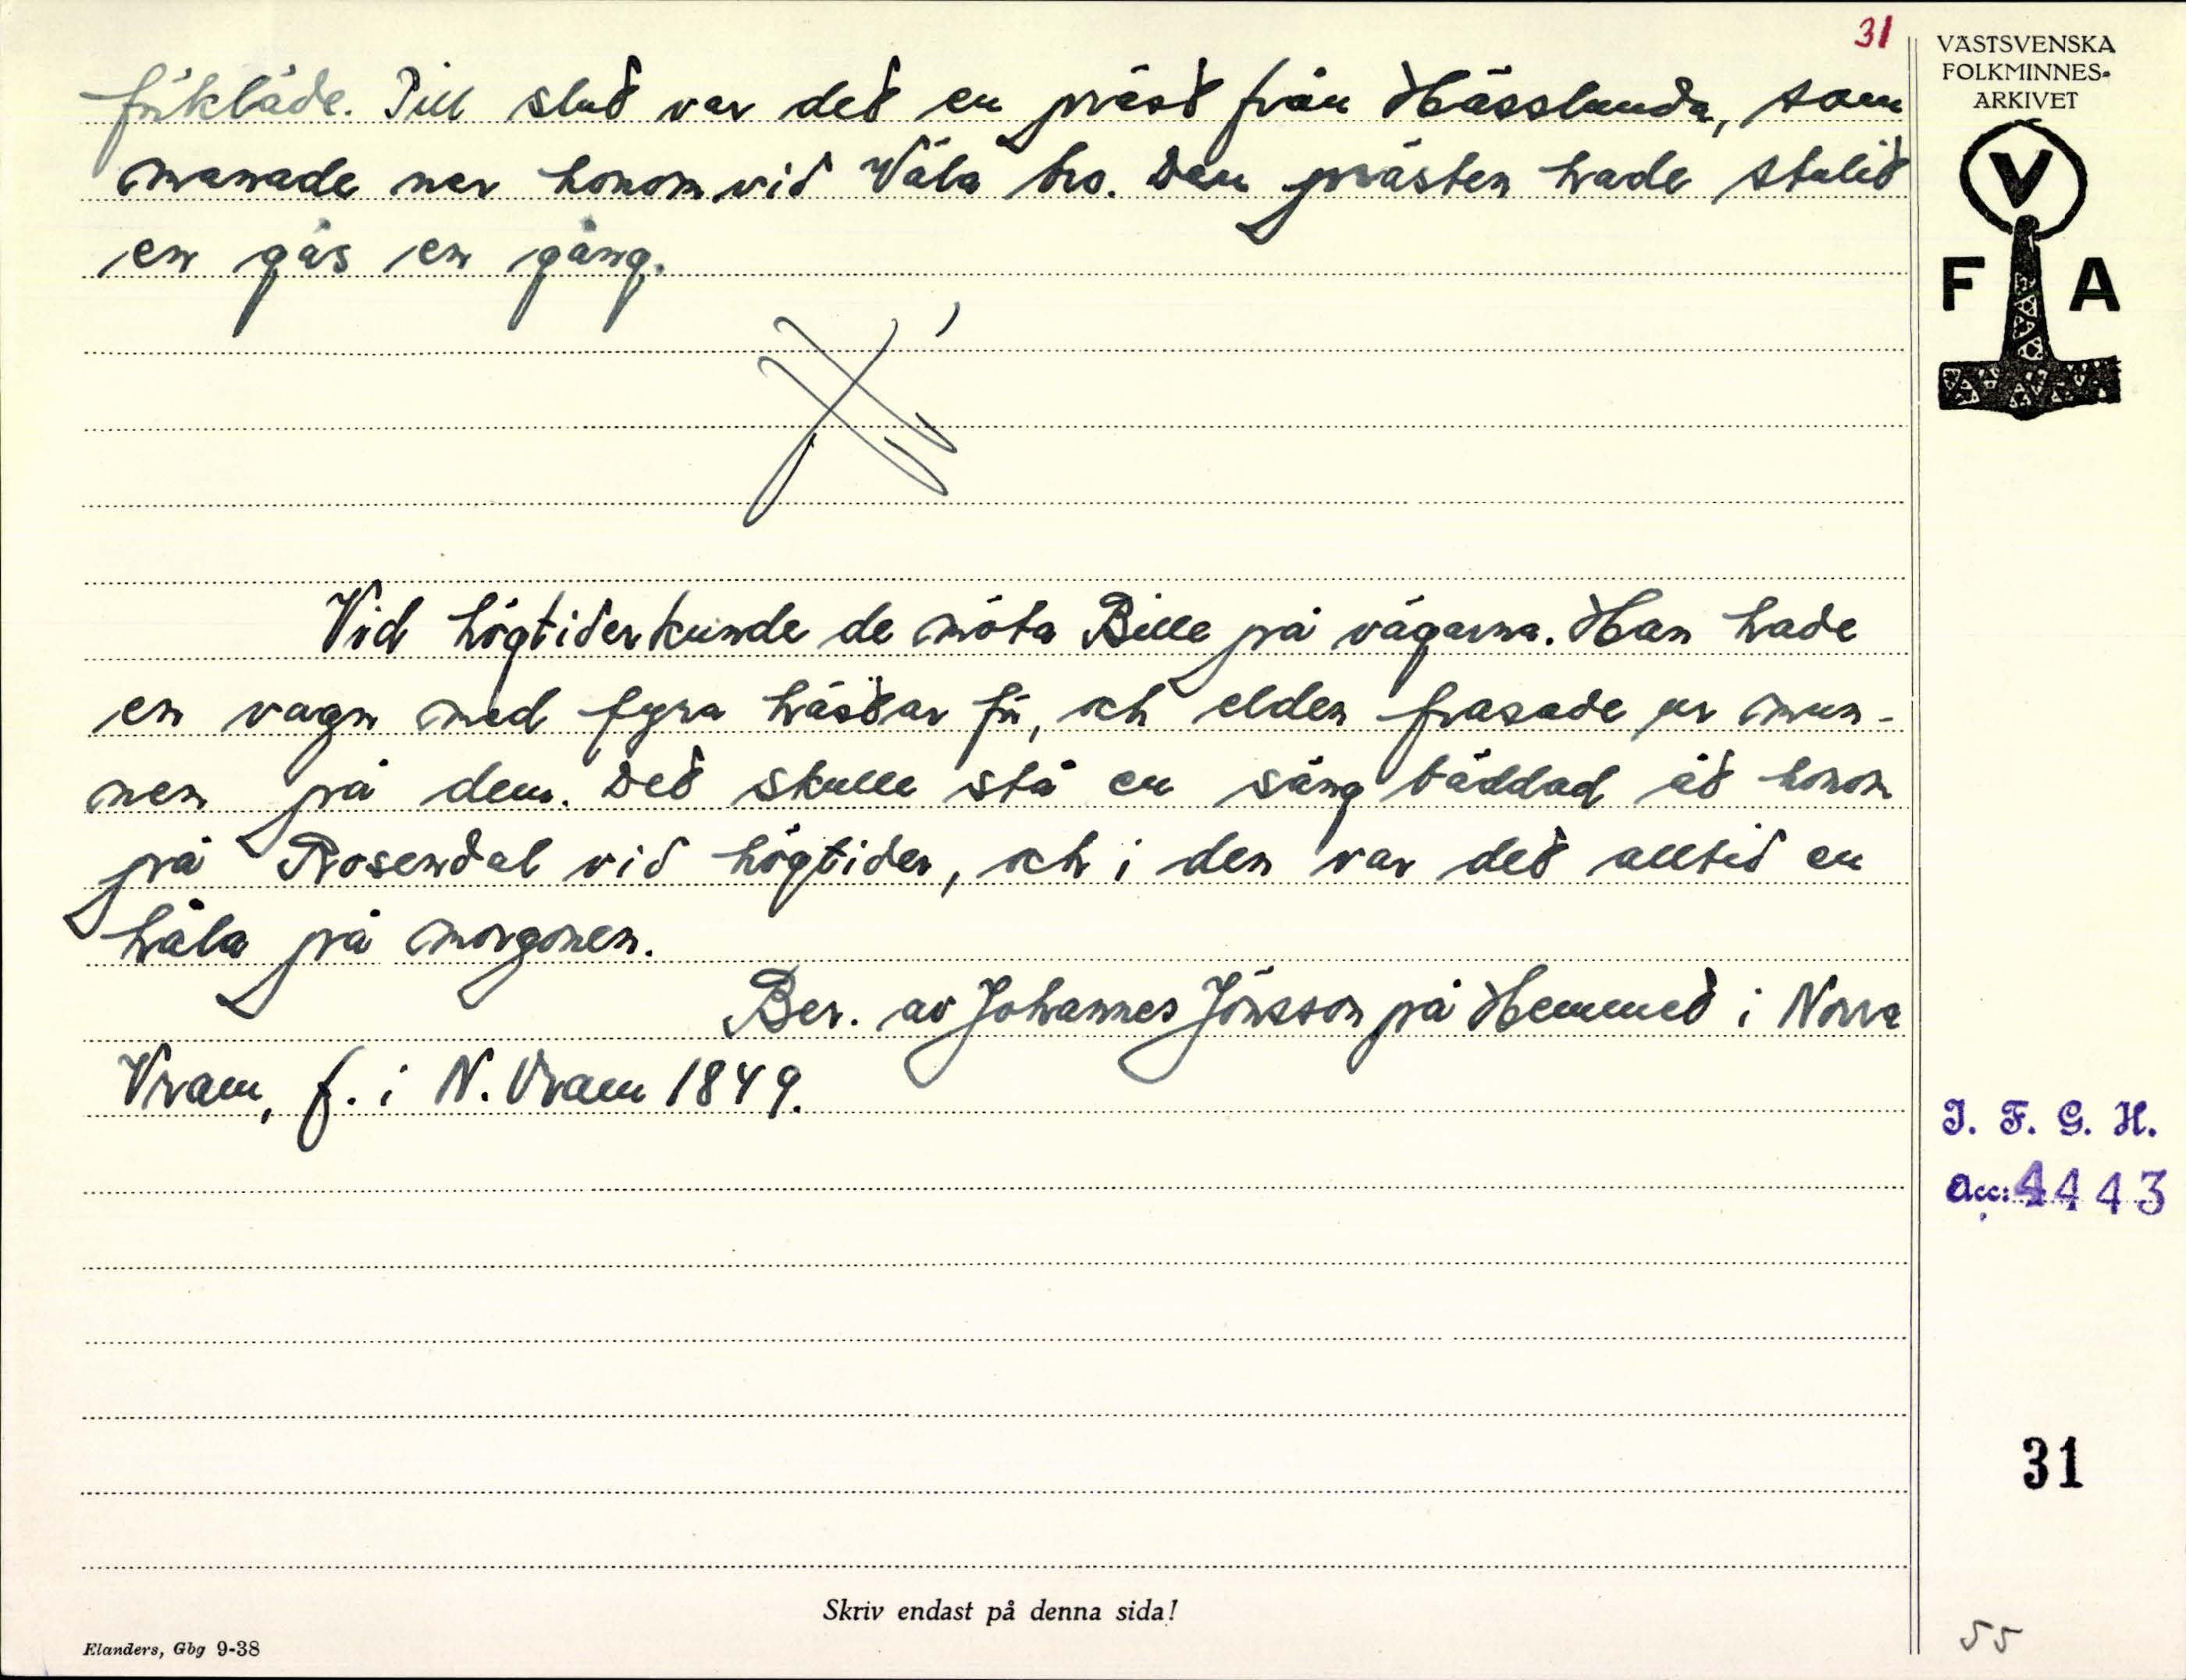 31
förkläde. Till slut var det en präst från Hässlunda, som
manade ner honom vid Väla bro. Den prästen hade stulit
en gås en gång.
Vid högtider kunde de möta Bille på vägarna. Han hade
en vagn med fyra hästar för, och elden frasade ur mun-
nen på dem. Det skulle stå en säng bäddad åt honom
på Rosendal vid högtider, och i den var det alltid en
håla på morgonen.
Ber. av Johannes Jönsson på Hemmed i Norra
Vram, f. i N. Vram 1849.
Skriv endast på denna sida!
Elanders, Gbg 9-38
VÄSTSVENSKA
FOLKMINNES-
ARKIVET
V
F A
I. F. G. H.
Acc: 4443
31
55